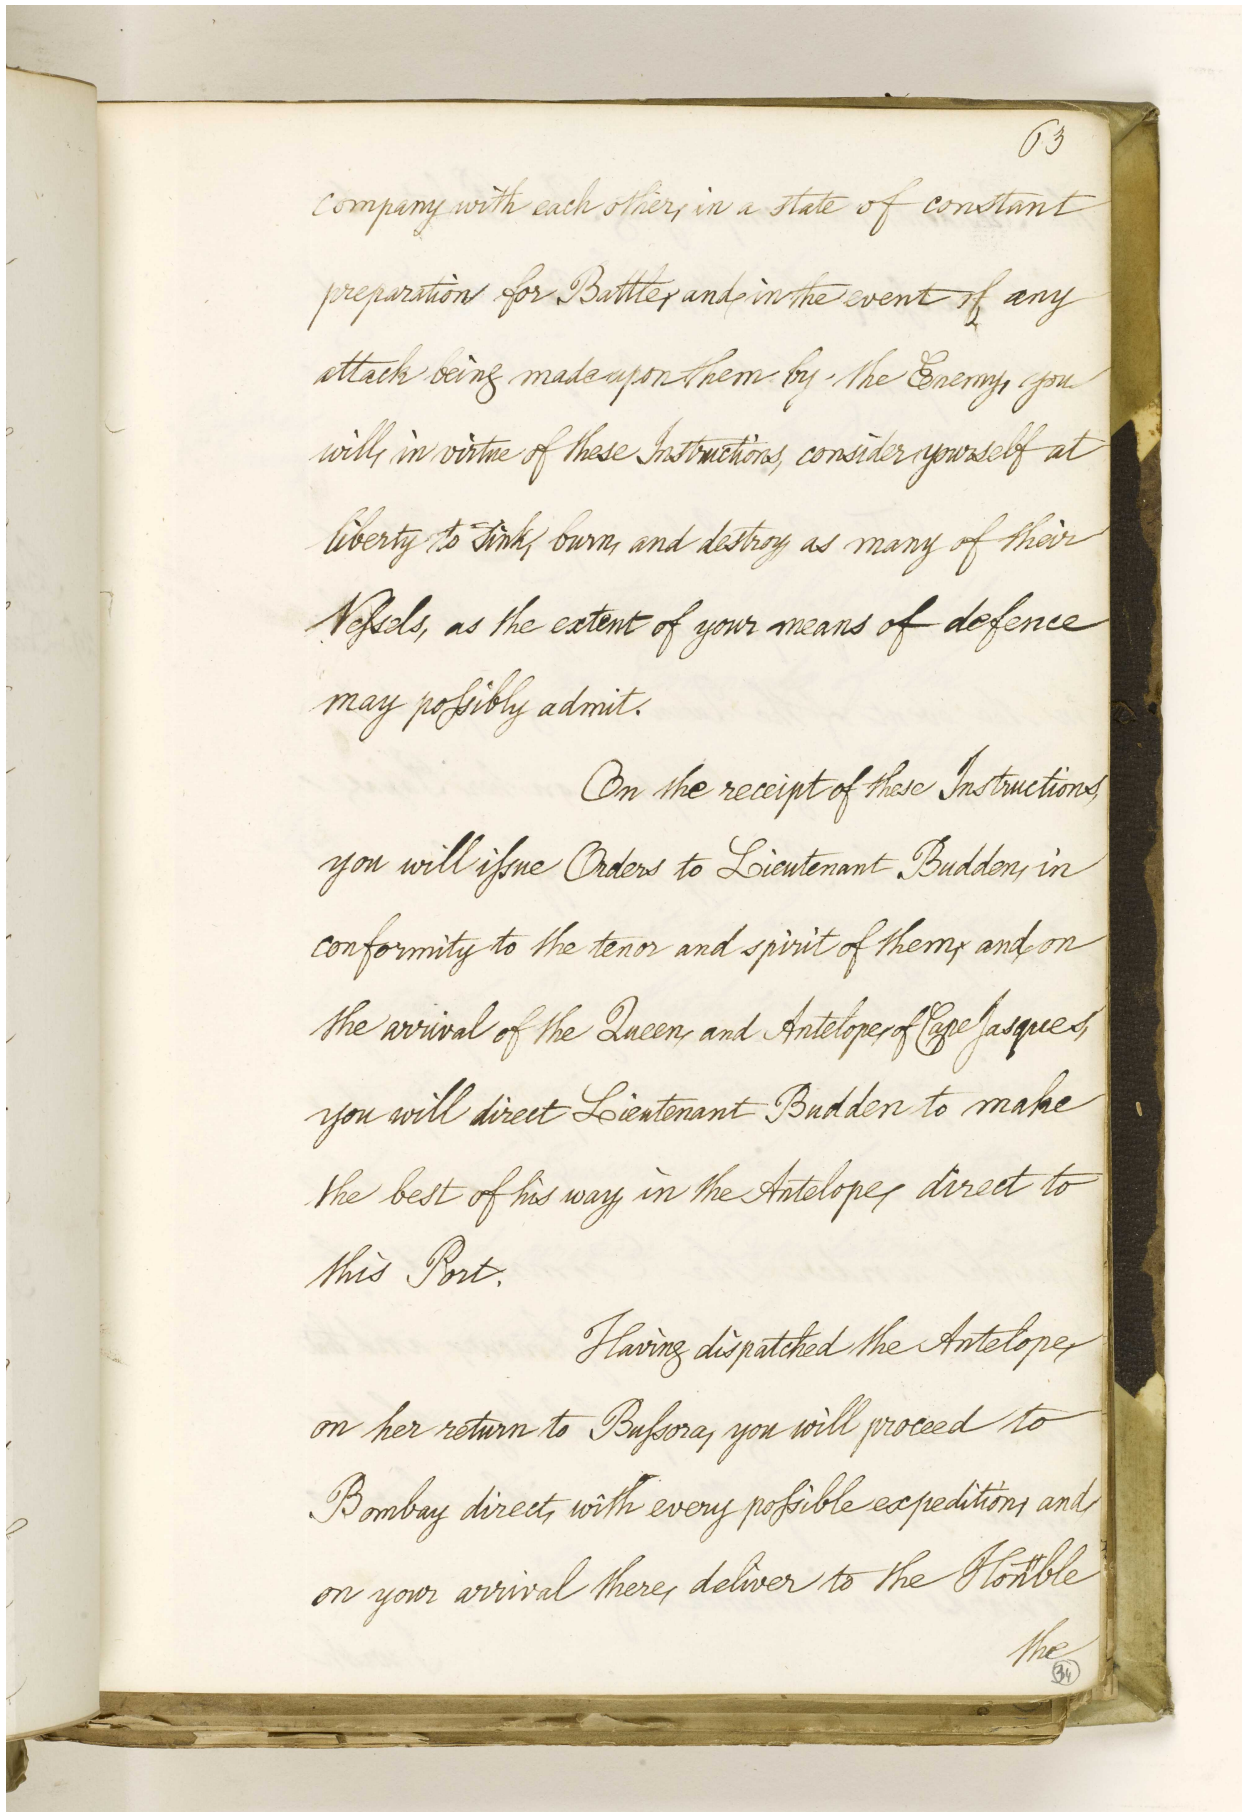 63
company with each other, in a state of constant
preparation for Battle, and, in the event of any
attack being made upon them by the Enemy, you
will, in virtue of these Instructions, consider yourself at
liberty to sink, burn, and destroy as many of their
Veſsels, as the extent of your means of defence
may poſsibly admit.
On the receipt of these Instructions,
you will iſsue Orders to Lieutenant Budden, in
conformity to the tenor and spirit of them, and, on
the arrival of the Queen, and Antelope, of Cape Jasques,
you will direct Lieutenant Budden to make
the best of his way, in the Antelope, direct to
this Port.
Having dispatched the Antelope,
on her return to Buſsora, you will proceed to
Bombay direct, with every poſsible expedition, and,
on your arrival there, deliver to the Honble
the
34